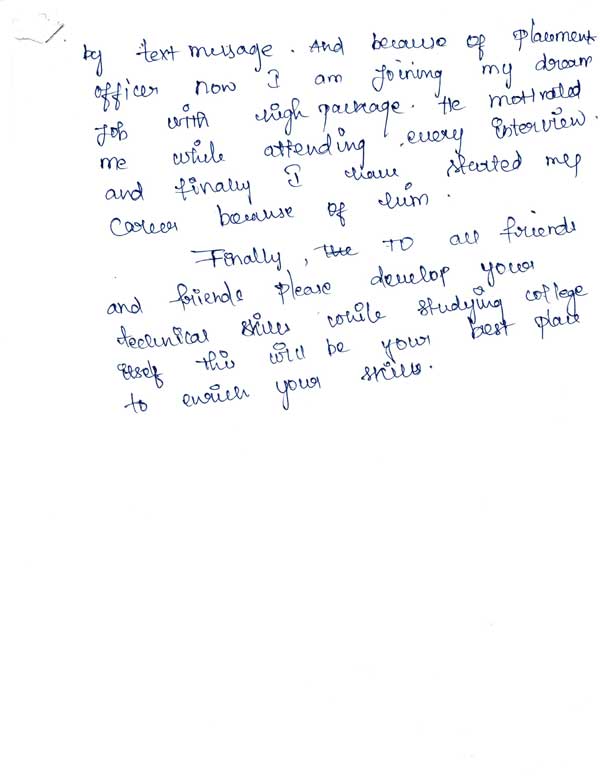 by text message. And because of placement
officer now I am joining my dream
job with high package. He motivated
me while attending every interview.
and finally I have started my
career because of him.
Finally, the To all friends
and friends please develop your
technical skills while studying college
itself this will be your best place
to enrich your skills.